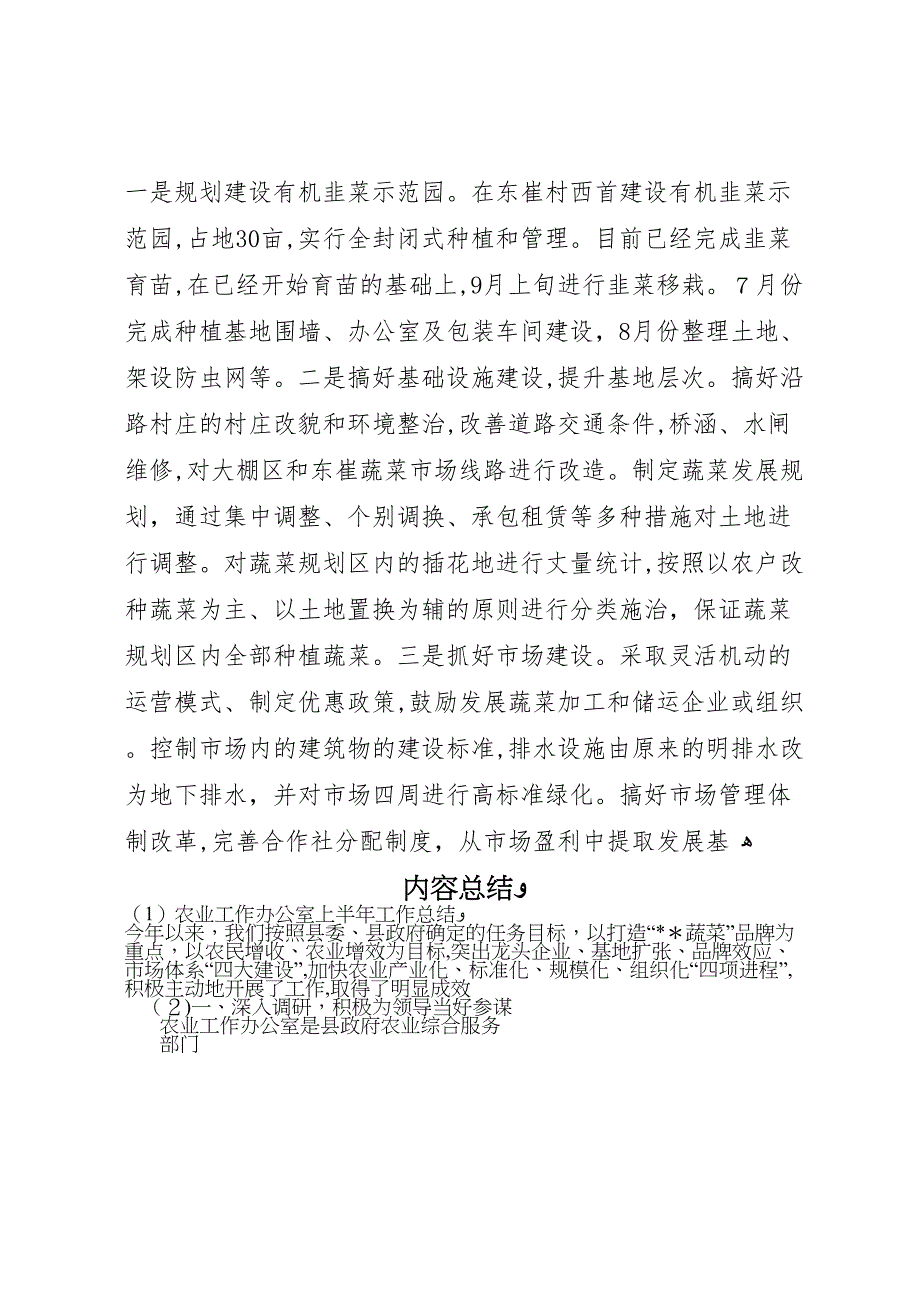 一是规划建设有机韭菜示范园。在东崔村西首建设有机韭菜示
范园,占地30亩,实行全封闭式种植和管理。目前已经完成韭菜
育苗,在已经开始育苗的基础上,9月上旬进行韭菜移栽。７月份
完成种植基地围墙、办公室及包装车间建设，8月份整理土地、
架设防虫网等。二是搞好基础设施建设,提升基地层次。搞好沿
路村庄的村庄改貌和环境整治,改善道路交通条件,桥涵、水闸
维修,对大棚区和东崔蔬菜市场线路进行改造。制定蔬菜发展规
划，通过集中调整、个别调换、承包租赁等多种措施对土地进
行调整。对蔬菜规划区内的插花地进行丈量统计,按照以农户改
种蔬菜为主、以土地置换为辅的原则进行分类施治，保证蔬菜
规划区内全部种植蔬菜。三是抓好市场建设。采取灵活机动的
运营模式、制定优惠政策,鼓励发展蔬菜加工和储运企业或组织
。控制市场内的建筑物的建设标准,排水设施由原来的明排水改
为地下排水，并对市场四周进行高标准绿化。搞好市场管理体
制改革,完善合作社分配制度，从市场盈利中提取发展基 ﻫ
内容总结ﻭ
（1）农业工作办公室上半年工作总结ﻭ
今年以来，我们按照县委、县政府确定的任务目标，以打造“*＊蔬菜”品牌为
重点，以农民增收、农业增效为目标,突出龙头企业、基地扩张、品牌效应、
市场体系“四大建设”,加快农业产业化、标准化、规模化、组织化“四项进程”,
积极主动地开展了工作,取得了明显成效
（２)一、深入调研，积极为领导当好参谋
农业工作办公室是县政府农业综合服务
部门